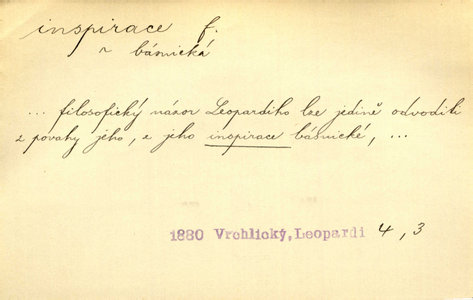 inspirace f.
~ básnická
... filosofický názor Leopardiho lze jedině odvoditi
z povahy jeho, z jeho inspirace básnické, ...
1880 Vrchlický, Leopardi 4, 3